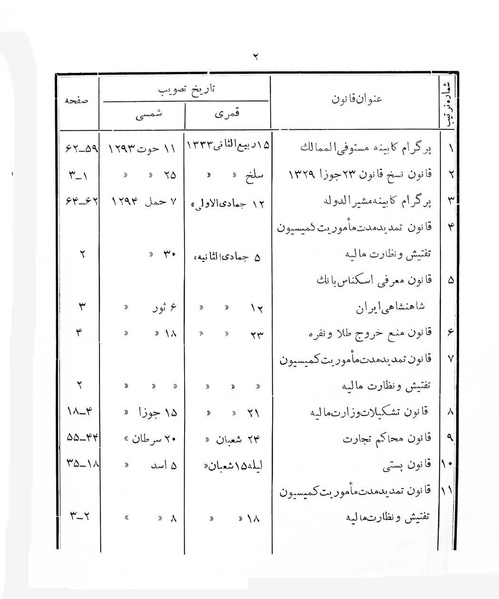 ۲
شماره ترتیب	عنوان قانون	تاریخ تصویب	صفحه
قمری	شمسی
۱	پرگرام کابینه مستوفی‌الممالک	۱۵ ربیع‌الثانی ۱۳۳۳	۱۱ حوت ۱۲۹۳	۵۹–۶۲
۲	قانون نسخ قانون ۲۳ جوزا ۱۳۲۹	سلخ « «	۲۵ « «	۱–۳
۳	پرگرام کابینه مشیرالدوله	۱۲ جمادی‌الاولی «	۷ حمل ۱۲۹۴	۶۲–۶۴
۴	قانون تمدید مدت مأموریت کمیسیون
تفتیش و نظارت مالیه	۵ جمادی‌الثانیه «	۳۰ « «	۲
۵	قانون معرفی اسکناس بانک
شاهنشاهی ایران	۱۲ « «	۶ ثور «	۳
۶	قانون منع خروج طلا و نقره	۲۳ « «	۱۸ « «	۴
۷	قانون تمدید مدت مأموریت کمیسیون
تفتیش و نظارت مالیه	« « «	« « «	۲
۸	قانون تشکیلات وزارت مالیه	۲۱ « «	۱۵ جوزا «	۴–۱۸
۹	قانون محاکم تجارت	۲۴ شعبان «	۲۰ سرطان «	۴۴–۵۵
۱۰	قانون پستی	لیله ۱۵ شعبان «	۵ اسد «	۱۸–۳۵
۱۱	قانون تمدید مدت مأموریت کمیسیون
تفتیش و نظارت مالیه	۱۸ « «	۸ « «	۲–۳